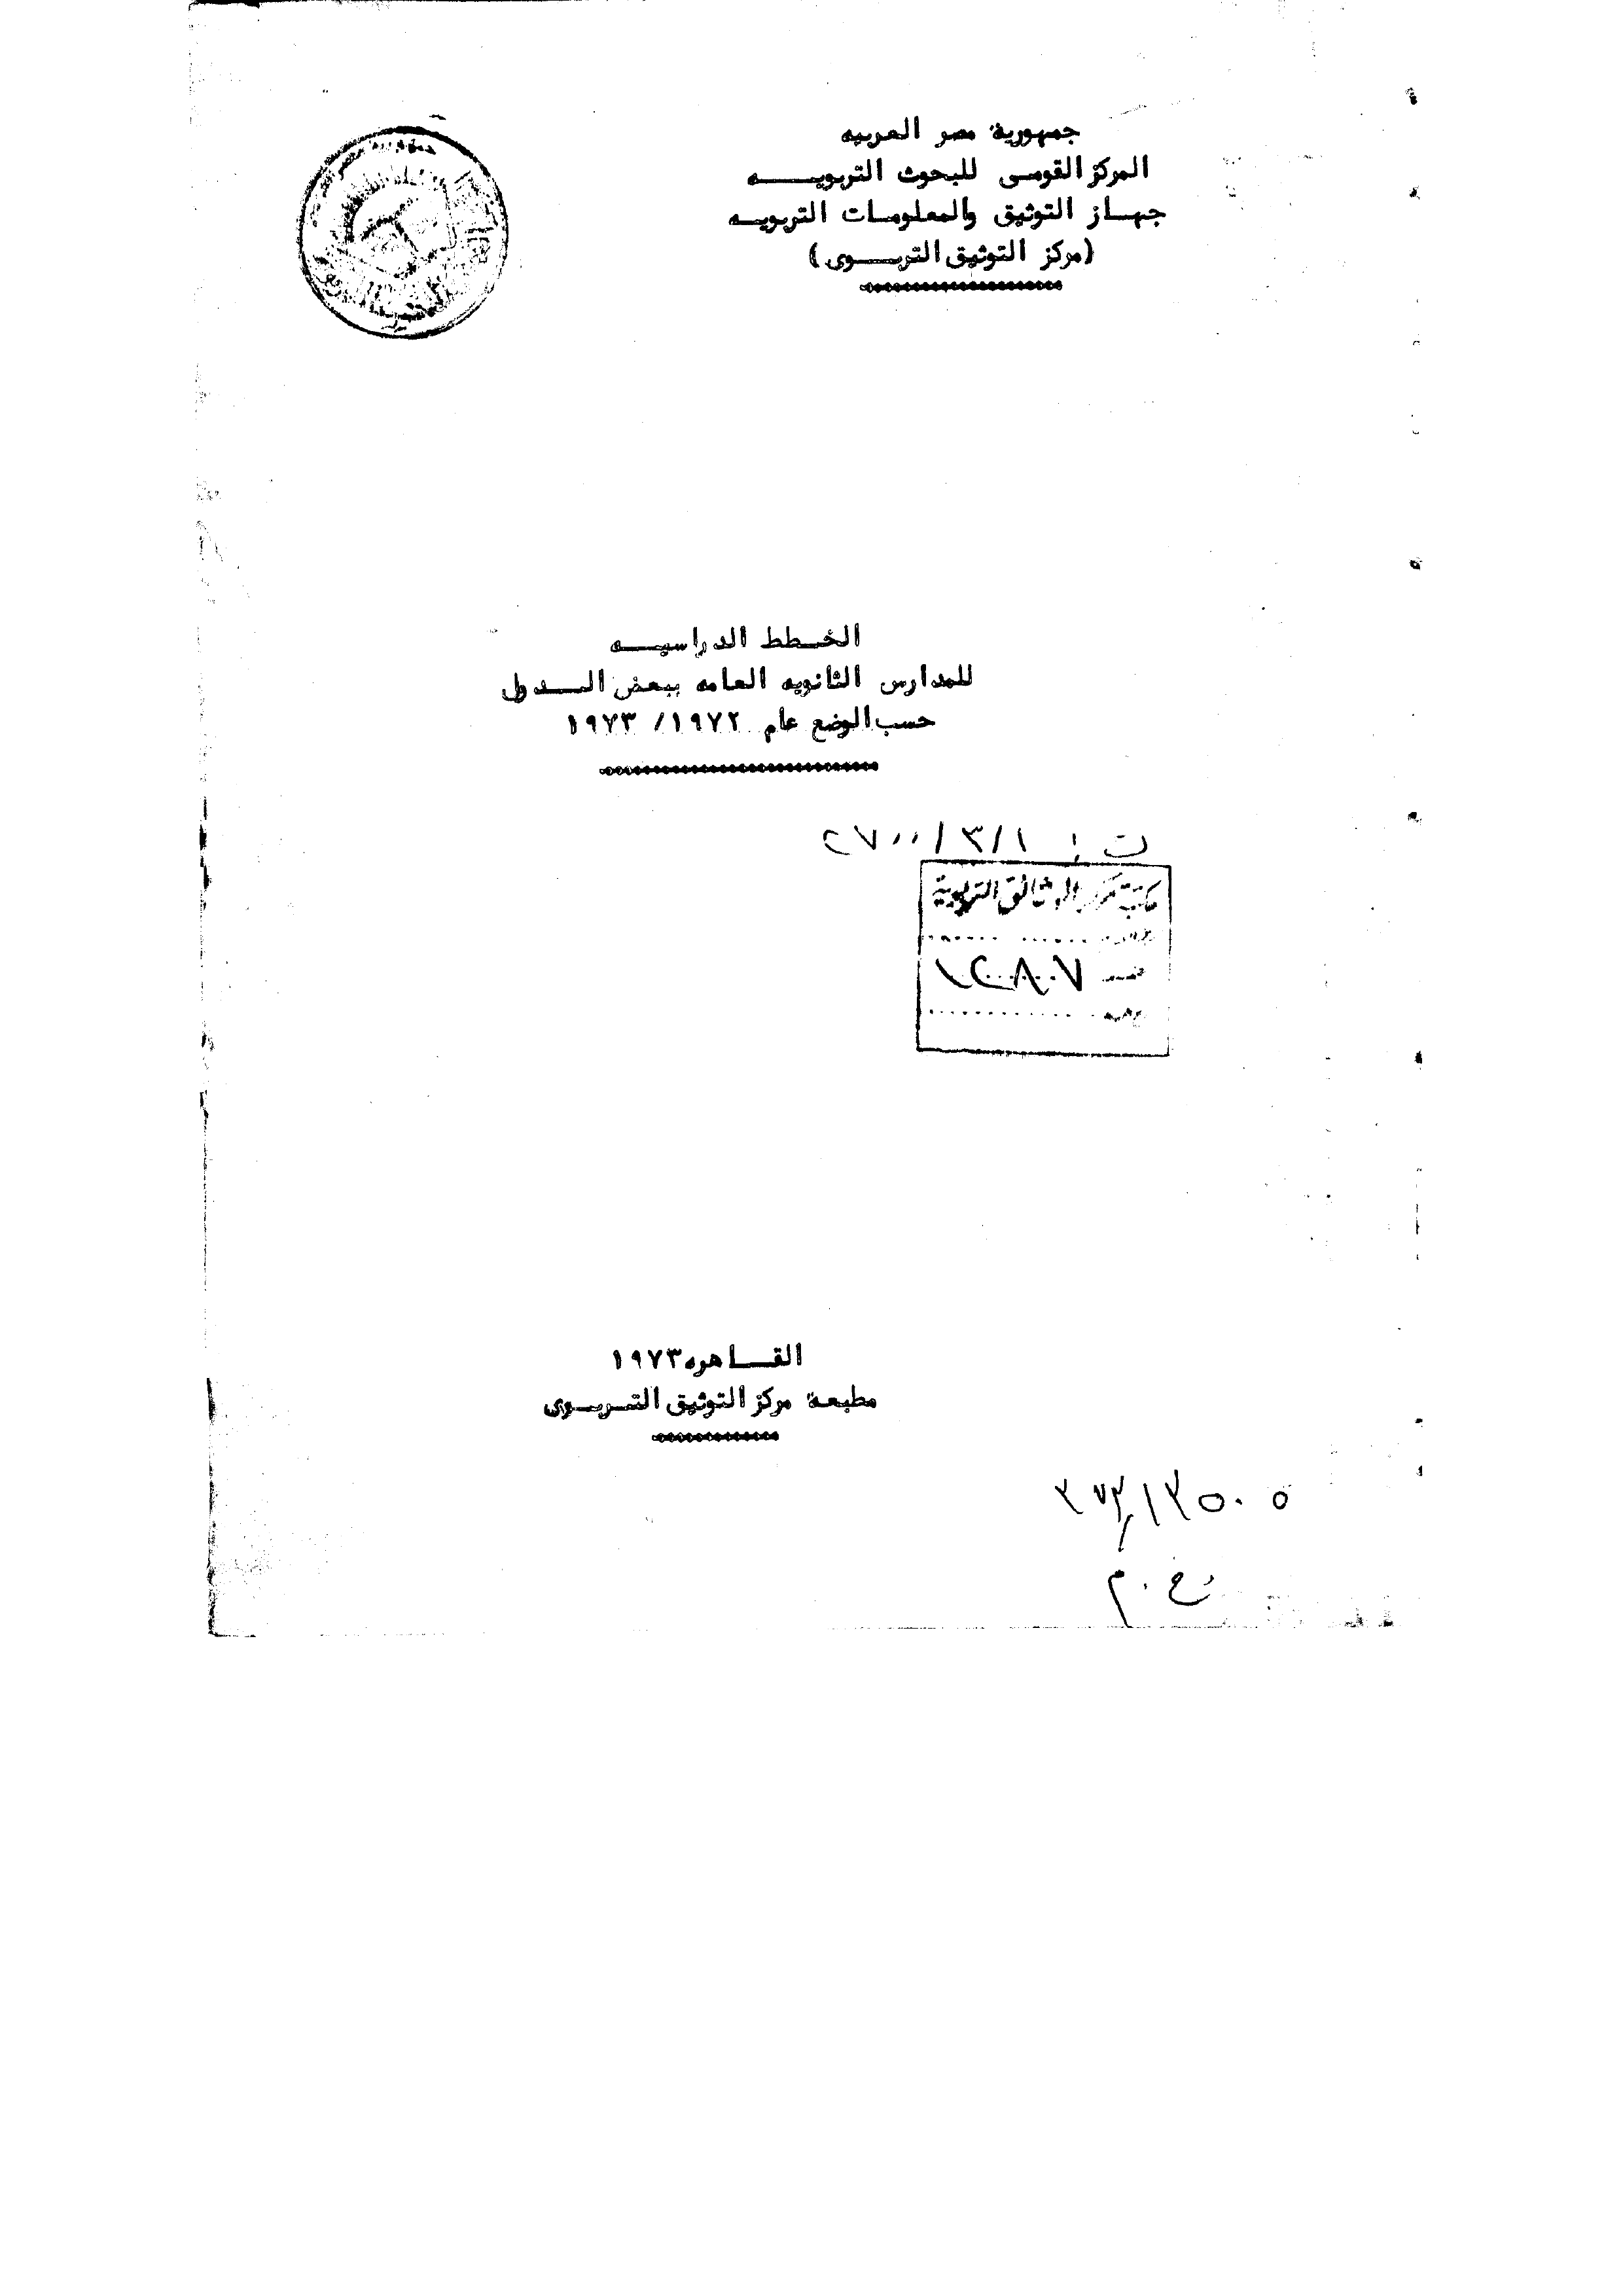 جمهورية مصر العربيه
المركز القومى للبحوث التربويــــه
جهــاز التوثيق والمعلومات التربويــه
(مركز التوثيق التربــوى)
الخــطط الدراسيــــه
للمدارس الثانويه العامه ببعض الـــدول
حسب الوضع عام ١٩٧٢/ ١٩٧٣
ت : ٢٧٠٠/٣/١
مكتبة مركز الوثائق التربوية
١٢٨٠٧
القــاهره ١٩٧٣
مطبعة مركز التوثيق التــربــوى